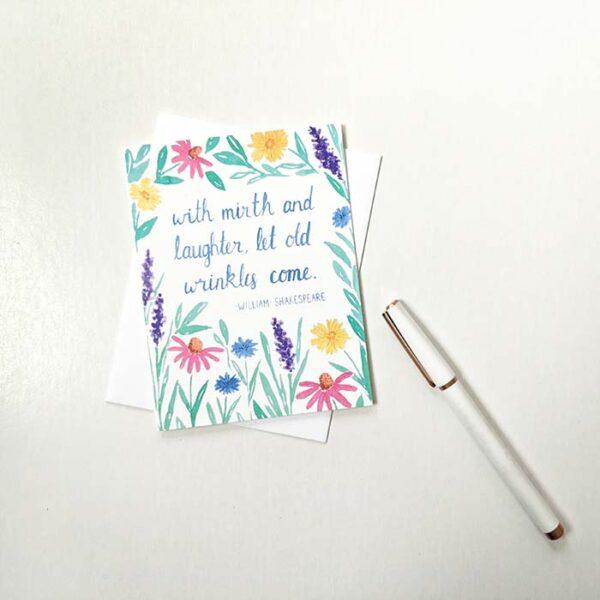 with mirth and
laughter, let old
wrinkles come.
-WILLIAM SHAKESPEARE